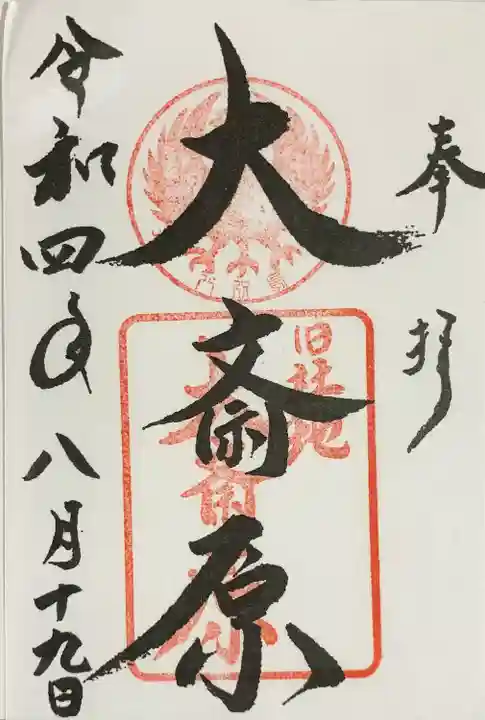 奉拝
大斎原
旧社地
大斎原
令和四年八月十九日